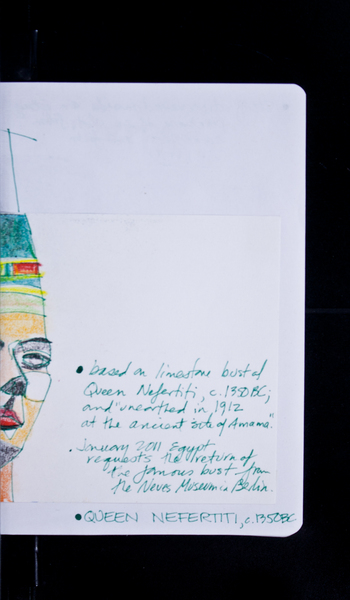 • based on limestone bust of
Queen Nefertiti, c.1350BC;
and "unearthed in 1912
at the ancient site of Amarna."
• January 2011 Egypt
requests the return of
the famous bust from
the Neues Museum in Berlin.
• QUEEN NEFERTITI, c.1350BC